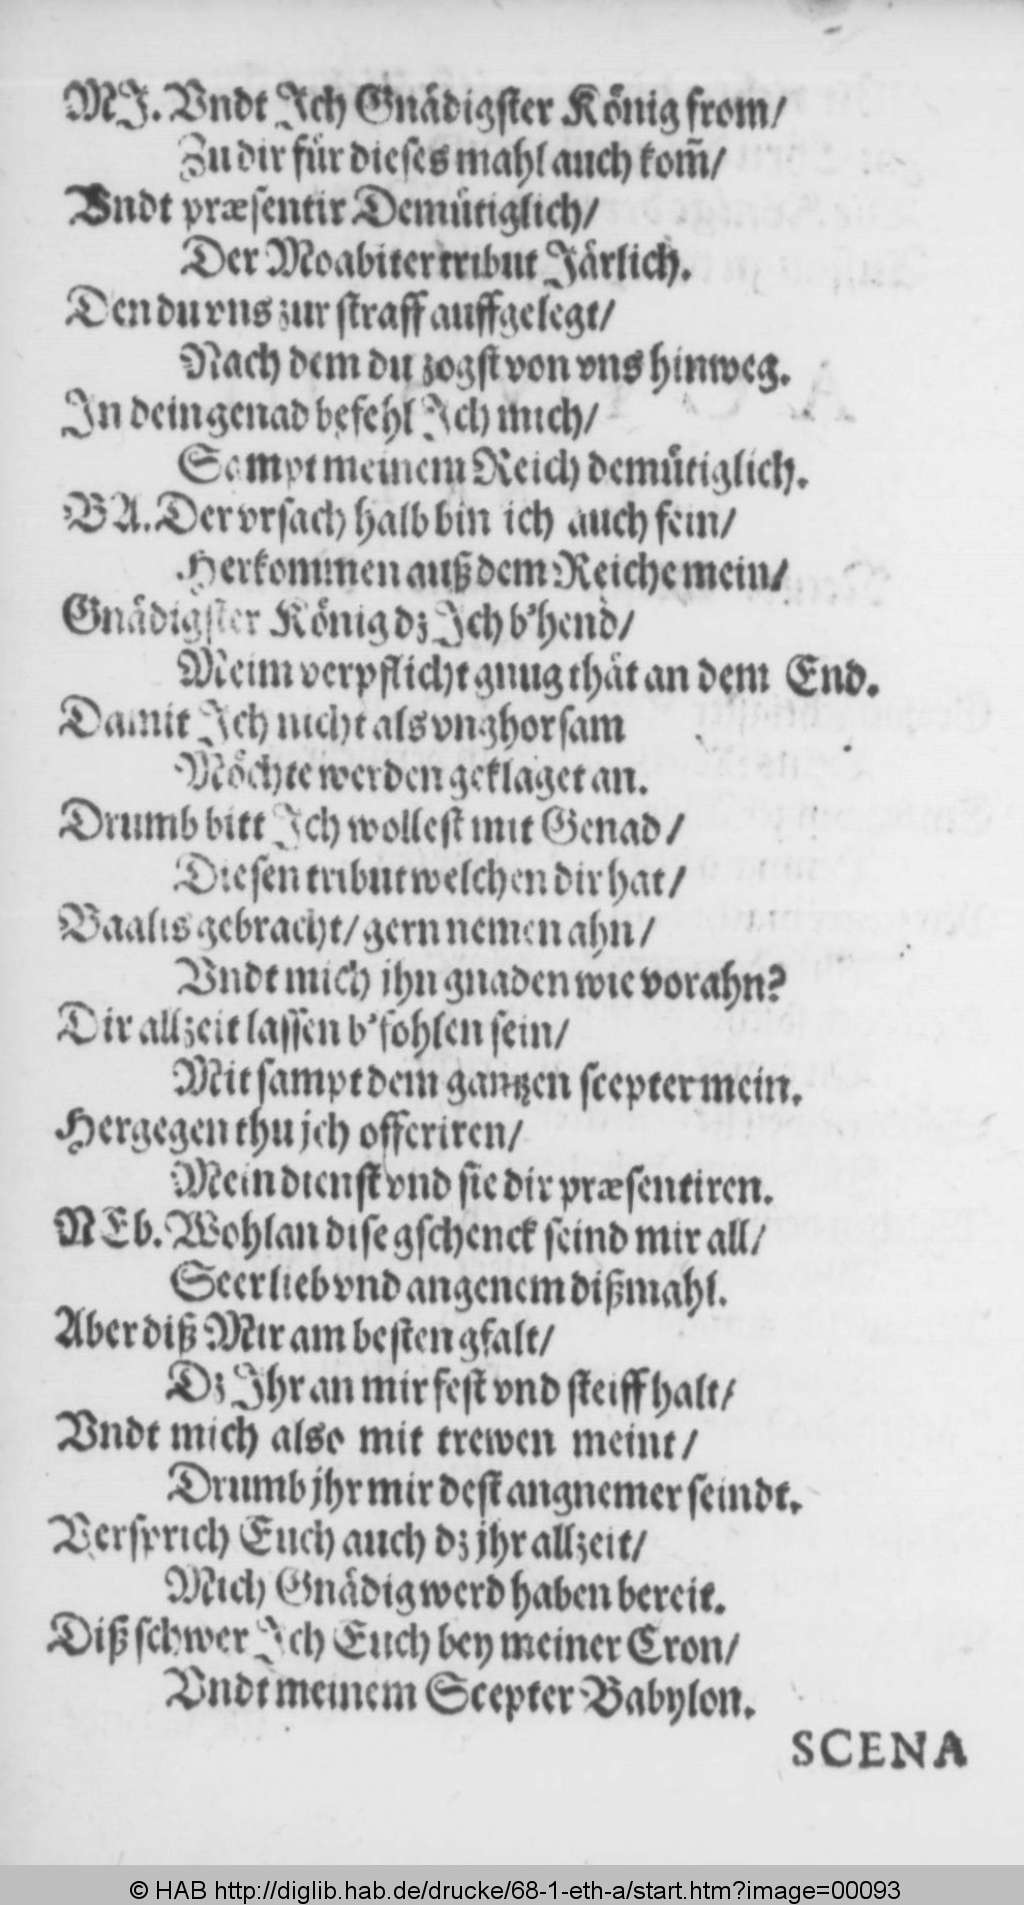 MJ. Vndt Jch Gnädigster König from/
Zu dir für dieses mahl auch kom̃/
Vndt præsentir Demütiglich/
Der Moabiter tribut Järlich.
Den du vns zur straff auffgelegt/
Nach dem du zogst von vns hinweg.
Jn dein genad befehl Jch mich/
Sampt meinem Reich demütiglich.
BA. Der vrsach halb bin ich auch fein/
Herkommen auß dem Reiche mein/
Gnädigster König dz Jch b'hend/
Meim verpflicht gnug thät an dem End.
Damit Jch nicht als vnghorsam
Möchte werden geklaget an.
Drumb bitt Jch wollest mit Genad/
Diesen tribut welchen dir hat/
Baalis gebracht/ gern nemen ahn/
Vndt mich jhn gnaden wie vorahn?
Dir allzeit lassen b'fohlen sein/
Mit sampt dem gantzen scepter mein.
Hergegen thu jch offeriren/
Mein dienst vnd sie dir præsentiren.
NEb. Wohlan dise gschenck seind mir all/
Seer lieb vnd angenem dißmahl.
Aber diß Mir am besten gfalt/
Dz Jhr an mir fest vnd steiff halt/
Vndt mich also mit trewen meint/
Drumb jhr mir dest angnemer seindt.
Versprich Euch auch dz jhr allzeit/
Mich Gnädig werd haben bereit.
Diß schwer Jch Euch bey meiner Cron/
Vndt meinem Scepter Babylon.
SCENA
© HAB http://diglib.hab.de/drucke/68-1-eth-a/start.htm?image=00093